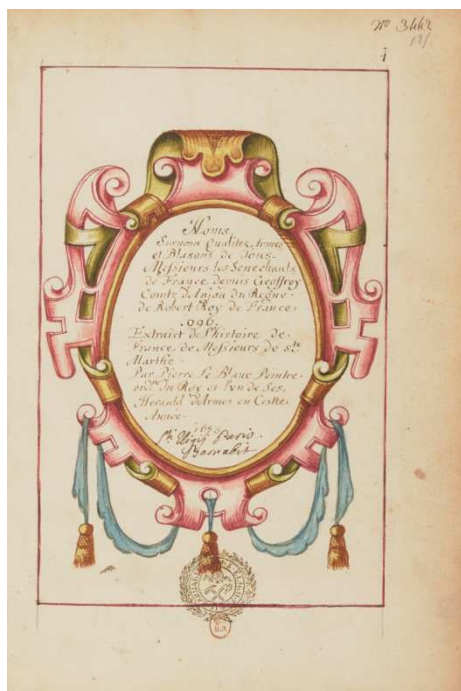 No 3442
1
Noms
Surnoms Qualitez Armes
et Blasons de Tous
Messieurs les Senechaux
de France depuis Geoffroy
Comte d'Anjou du Regne
de Robert Roy de France
.096.
Extraict de l'histoire de
France de Messieurs de Ste
Marthe
Par Pierre le Blanc Peintre
ordre du Roy et l'un de Ses
Herauld d'Armes en Cette
Année
Sti Eligii Paris.
Barnabit